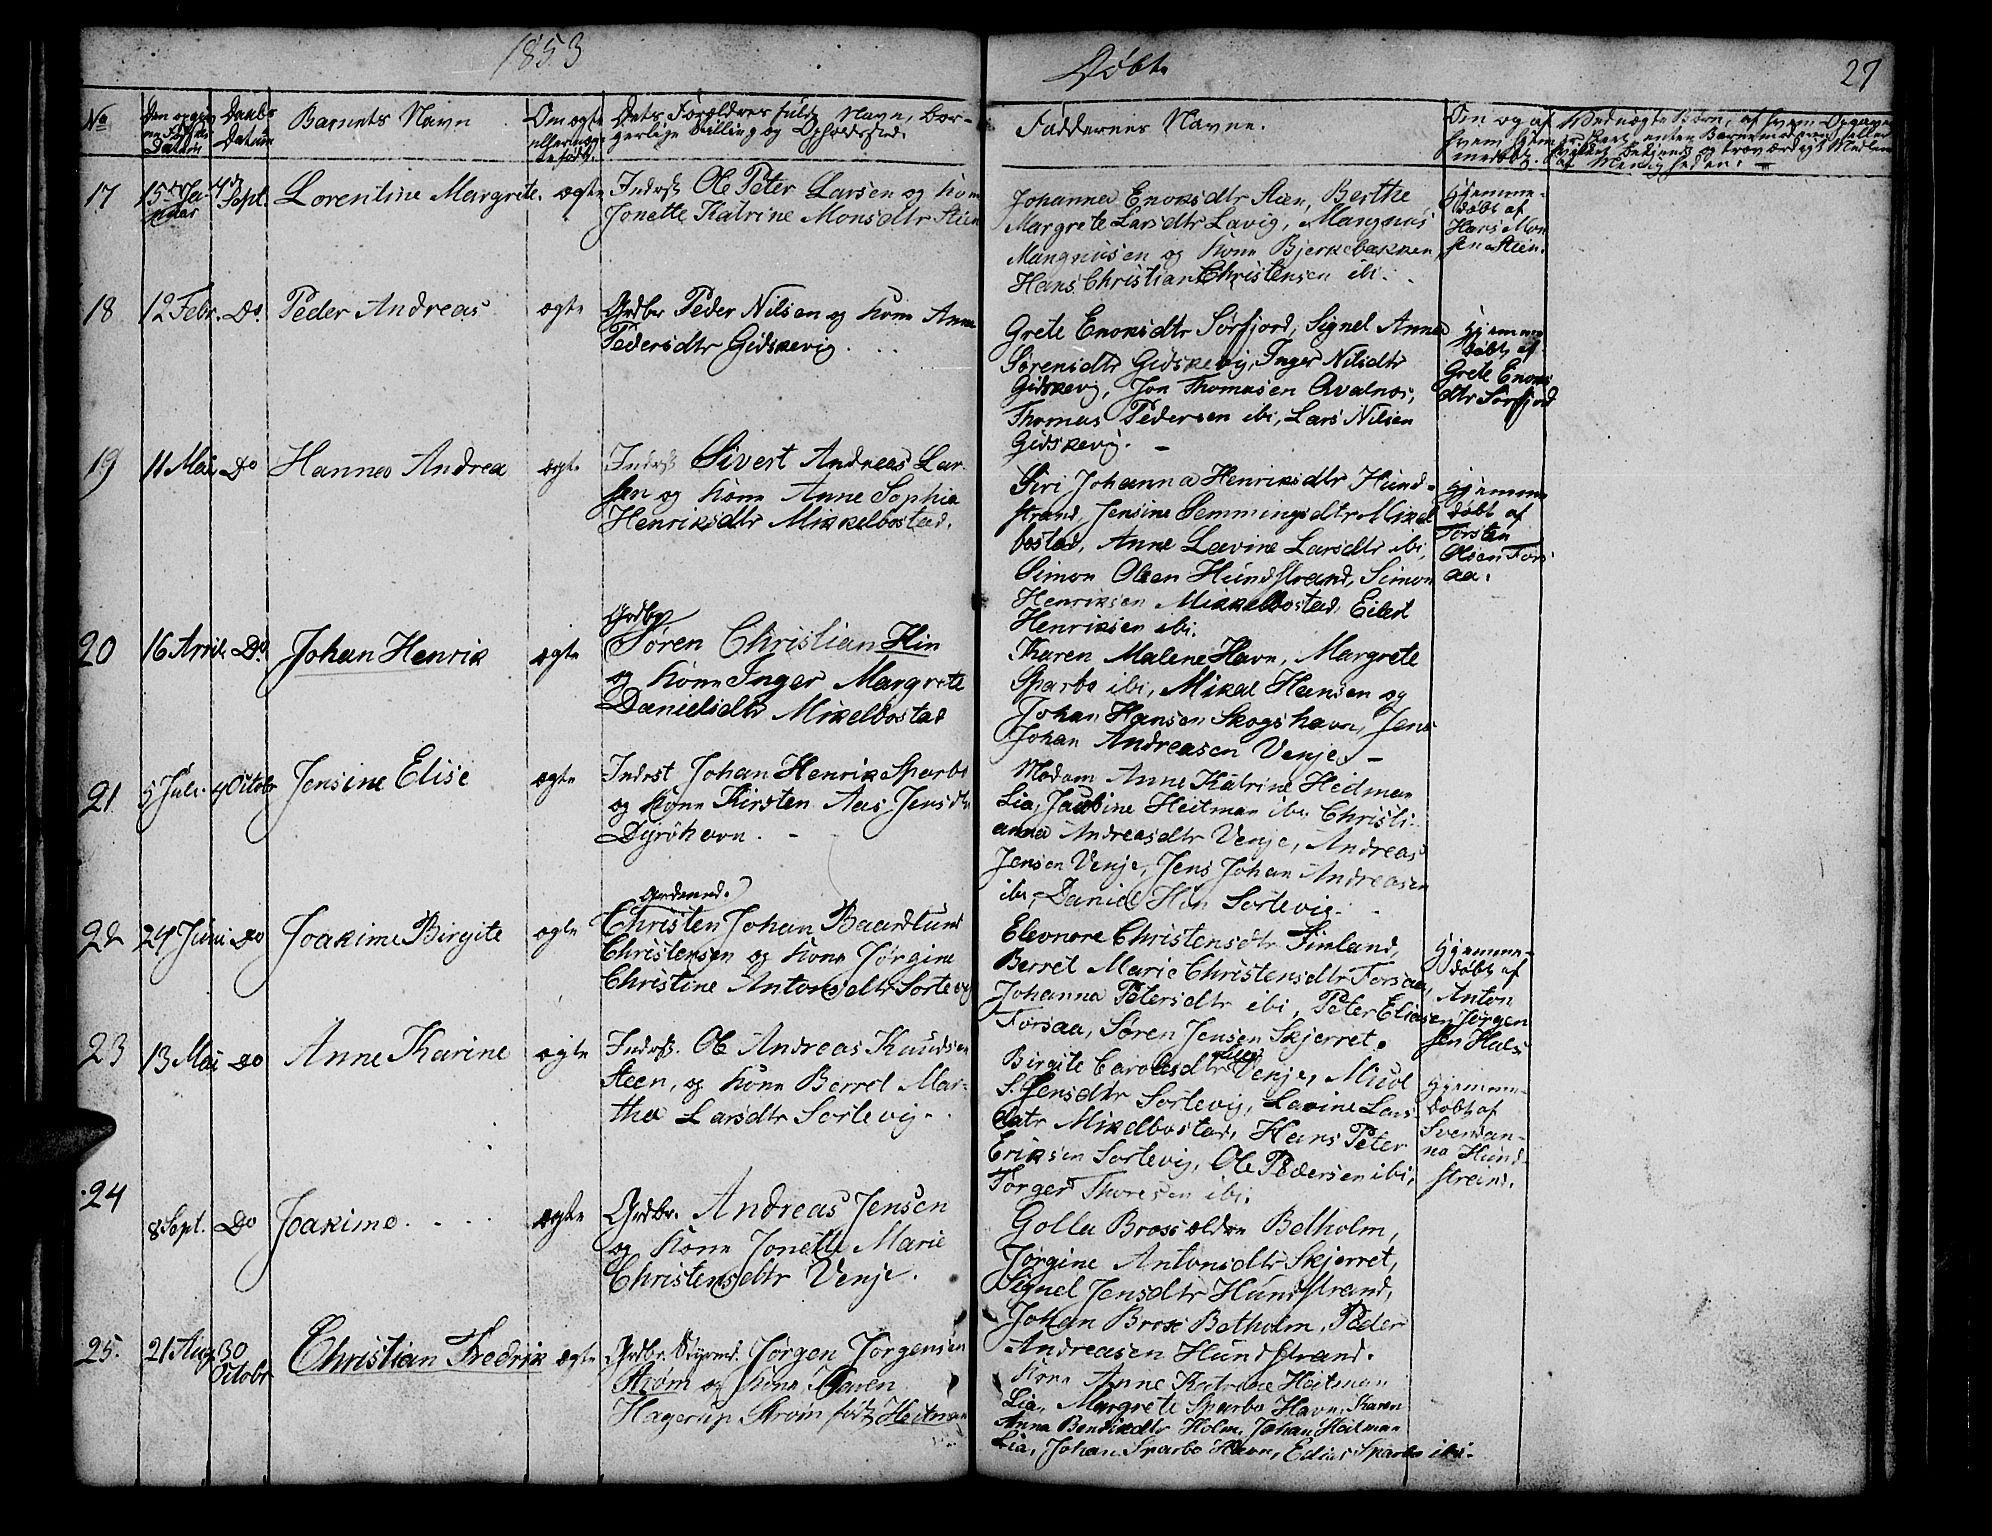 1853
Døbte
27
No
Datum
Daabs
Datum
Barnets Navn
Om ægte
eller uæg
te født.
Dets Forældres fulde Navn, bor-
gerlige Stilling og Opholdssted.
Faddernes Navne.
17
15de Ja
nuar
4de Sept.
Lorentine Margrete.
ægte
Indrst Ole Peter Larsen og Kone
Jonette Katrine Monsdtr Steen
Johanna Enoksdtr Steen, Berthe
Margrete Larsdtr Lavig, Mangnus
Mangnusen og Kone Bjerkebakken,
Hans Christian Christensen ibi.
Hjemme-
døbt af
Hans Mon
sen Steen.
18
12 Febr.
Do.
Peder Andreas
ægte
Grdbr Peder Nilsen og Kone Anne
Pedersdtr Gidskevig.
Grete Enoksdtr Sørfjord, Signel Anna
Sørensdtr Gidskevig, Inger Nilsdtr
Gidskevig, Jon Thomasen Qvalnes,
Thomas Pedersen ibi, Lars Nilsen
Gidskevig.
Hjemme
døbt af
Grete Enoks
dtr Sørfjord
19
11 Mai
Do
Hannes Andrea
ægte
Indrst Sivert Andreas Lar-
sen og Kone Anne Sophie
Henriksdtr Mikkelbostad.
Siri Johanna Henriksdtr Hund-
strand, Jensine Hemmingsdtr Mikel
bostad, Anne Lavine Larsdtr ibi,
Simon Olsen Hundstrand, Simon
Henriksen Mikkelbostad, Eilert
Henriksen ibi.
Hjemme
døbt af
Torsten
Olsen Fors
aa.
20
16 April
Do.
Johan Henrik
ægte
Grdbr
Søren Christian Hin
og Kone Inger Margrete
Danielsdtr Mikelbostad
Karen Malene Havn, Margrete
Sparbo ibi, Mikal Hansen og
Johan Hansen Skogshavn, Jens
Johan Andreasen Venje.
21
5 Juli.
4 Octobr
Jensine Elise
ægte
Indrst Johan Henrik Sparbo
og Kone Kirsten Aas Jensdtr
Dyröhavn.
Madam Anne Katrine Heitman
Lia, Jacobine Heitman ibi, Christi-
anna Andreasdtr Venje, Andreas
Jensen Venje, Jens Johan Andreasen
ibi, Daniel Hin Sørtevig.
22
24 Juni
Do
Joakime Birgite
ægte
Christen Johan Baardlund
Christensen og Kone Jørgine
Christine Antonsdtr Sortevig
Eleonore Christensdtr Finland,
Berret Marie Christensdtr Forsaa,
Johanna Petersdtr ibi, Peter Eliasen
Forsaa, Søren Jensen Skjerret.
Hjemme-
døbt af
Anton
Jørgen
sen Hals
23
13 Mai
Do
Anne Karine
ægte
Indrst. Ole Andreas Knudsen
Steen, og Kone Berret Mar-
tha Larsdtr Sortevig.
Birgite Carolusdtr Venje,
S. Jensdtr Sortevig, Lavine Lars-
datr Mikelbostad, Hans Peter
Eriksen Sortevig, Ole Pedersen ibi,
Torger Thoresen ibi.
Hjemme-
døbt af
Svendan-
na Hund-
strand.
24
8 Sept.
Do
Joakime.
ægte
Grdbr. Andreas Jensen
og Kone Jonette Marie
Christensdtr Venje.
Golla Brox ældre Betholm,
Jørgine Antonsdtr Skjerret,
Signel Jensdtr Hundstrand,
Johan Brox Betholm, Peder
Andreasen Hundstrand.
25.
21 Aug
30
Octobr
Christian Fredrik
ægte
Grdbr. Styrmd. Jørgen Jørgensen
Strøm og Kone Maren
Hagerup Strøm født Heitman
Kone Anne Katrine Heitman
Lia, Margrete Sparbo Havn, Karen
Anna Bendikdtr Holm, Johan Heitman
Lia, Johan Sparbo Havn, Edias Sparbo ibi.